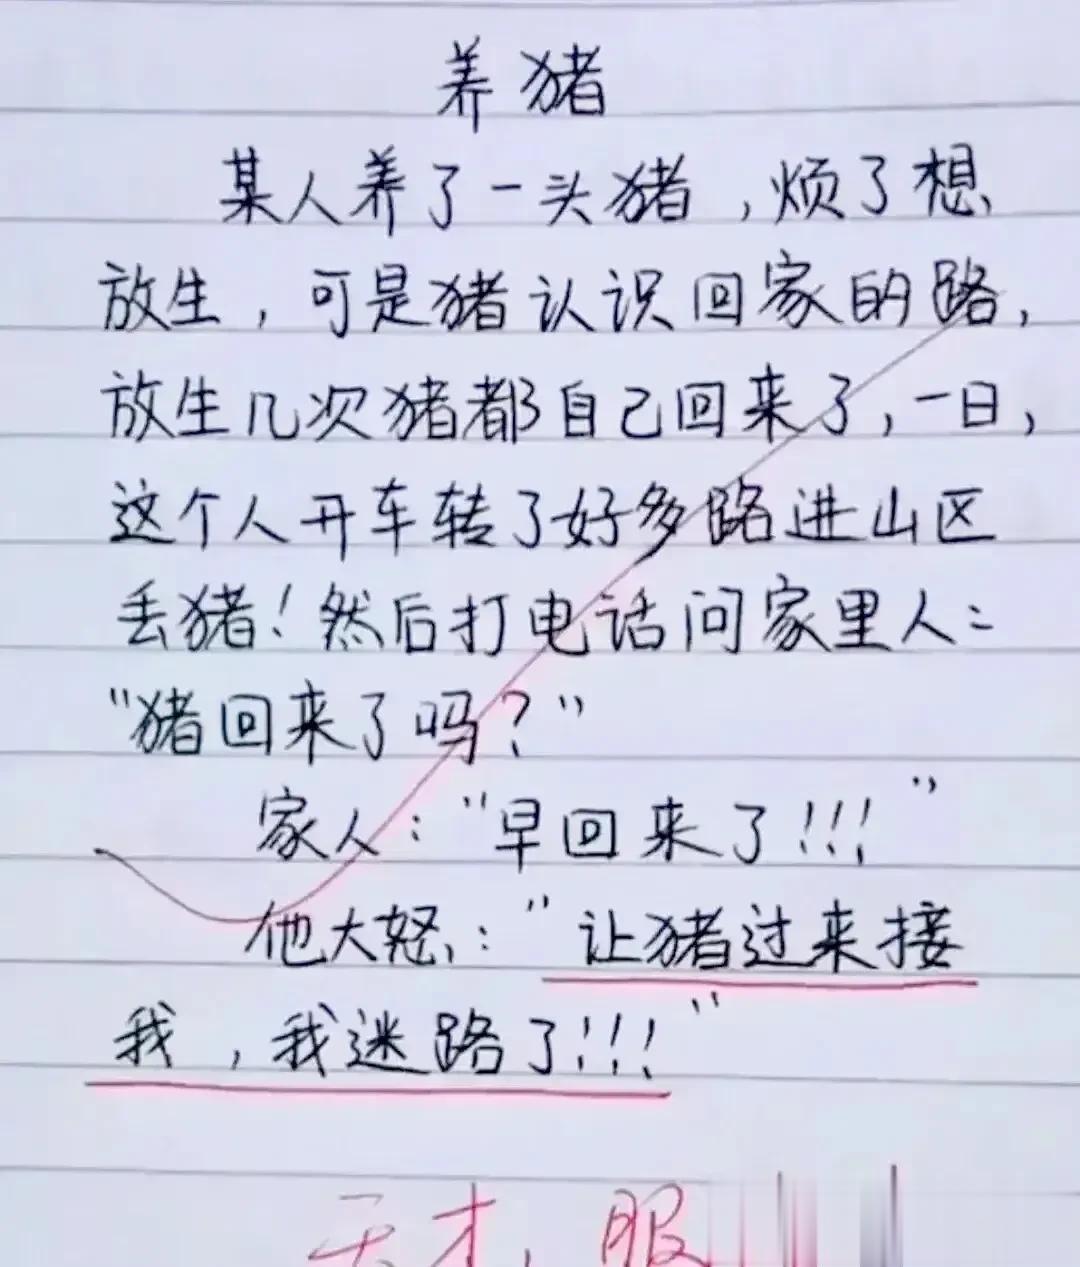 养猪
某人养了一头猪，烦了想
放生，可是猪认识回家的路，
放生几次猪都自己回来了，一日，
这个人开车转了好多路进山区
丢猪！然后打电话问家里人：
“猪回来了吗？”
家人：“早回来了!!!”
他大怒：“让猪过来接
我，我迷路了!!!”
天才，服